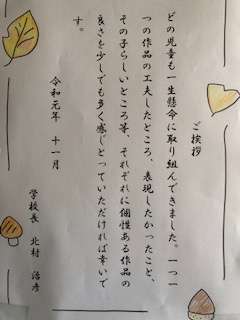 ご挨拶
どの児童も一生懸命に取り組んできました。一つ一
つの作品の工夫したところ、表現したかったこと、
その子らしいところ等、それぞれに個性ある作品の
良さを少しでも多く感じとっていただければ幸いで
す。
令和元年 十一月
学校長 北村 浩彦